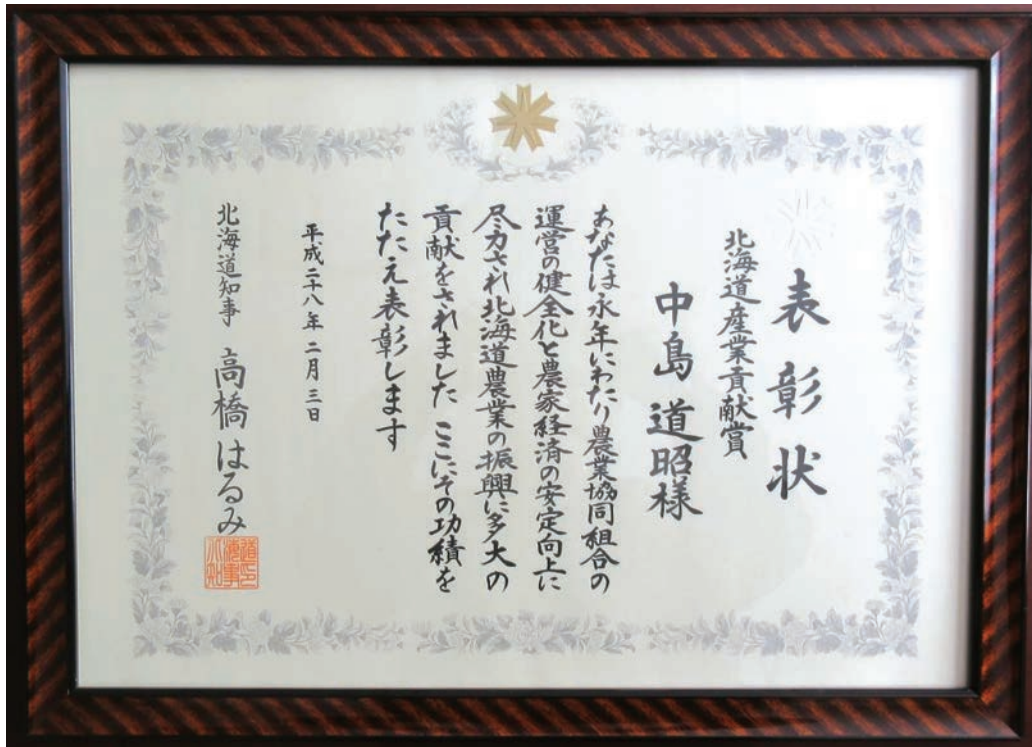 表彰状
北海道産業貢献賞
中島 道昭様
あなたは永年にわたり農業協同組合の
運営の健全化と農家経済の安定向上に
尽力され北海道農業の振興に多大の
貢献をされました ここにその功績を
たたえ表彰します
平成二十八年 二月 三日
北海道知事 高橋はるみ